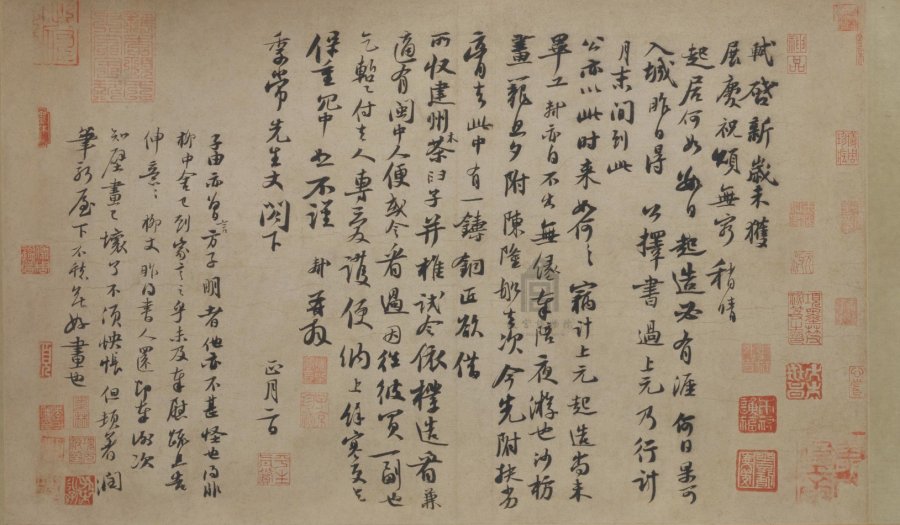 軾啓新歲未獲
展慶祝頌無窮稍晴
起居何如數日起造必有涯何日果可
入城昨日得公擇書過上元乃行計
月末間到此
公亦以此时来如何々竊計上元起造尚未
畢工軾亦自不出無緣奉陪夜游也沙枋
畫籠旦夕附陳隆船去次今先附扶劣
膏去此中有一鑄銅匠欲借
所收建州木茶臼子并椎試令依樣造看兼
適有閩中人便或令看過因往彼買一副也
乞暫付去人專愛護便納上餘寒更乞
保重冗中恕不謹軾再拜
正月二日
季常先生丈閤下
子由亦曾言方子明者他亦不甚怪也得非
柳中舍已到家言之乎未及奉慰疏且告
伸意々柳丈昨得書人還即奉謝次
知壁畫已壞了不須怏悵但頓著潤
筆新屋下不愁無好畫也